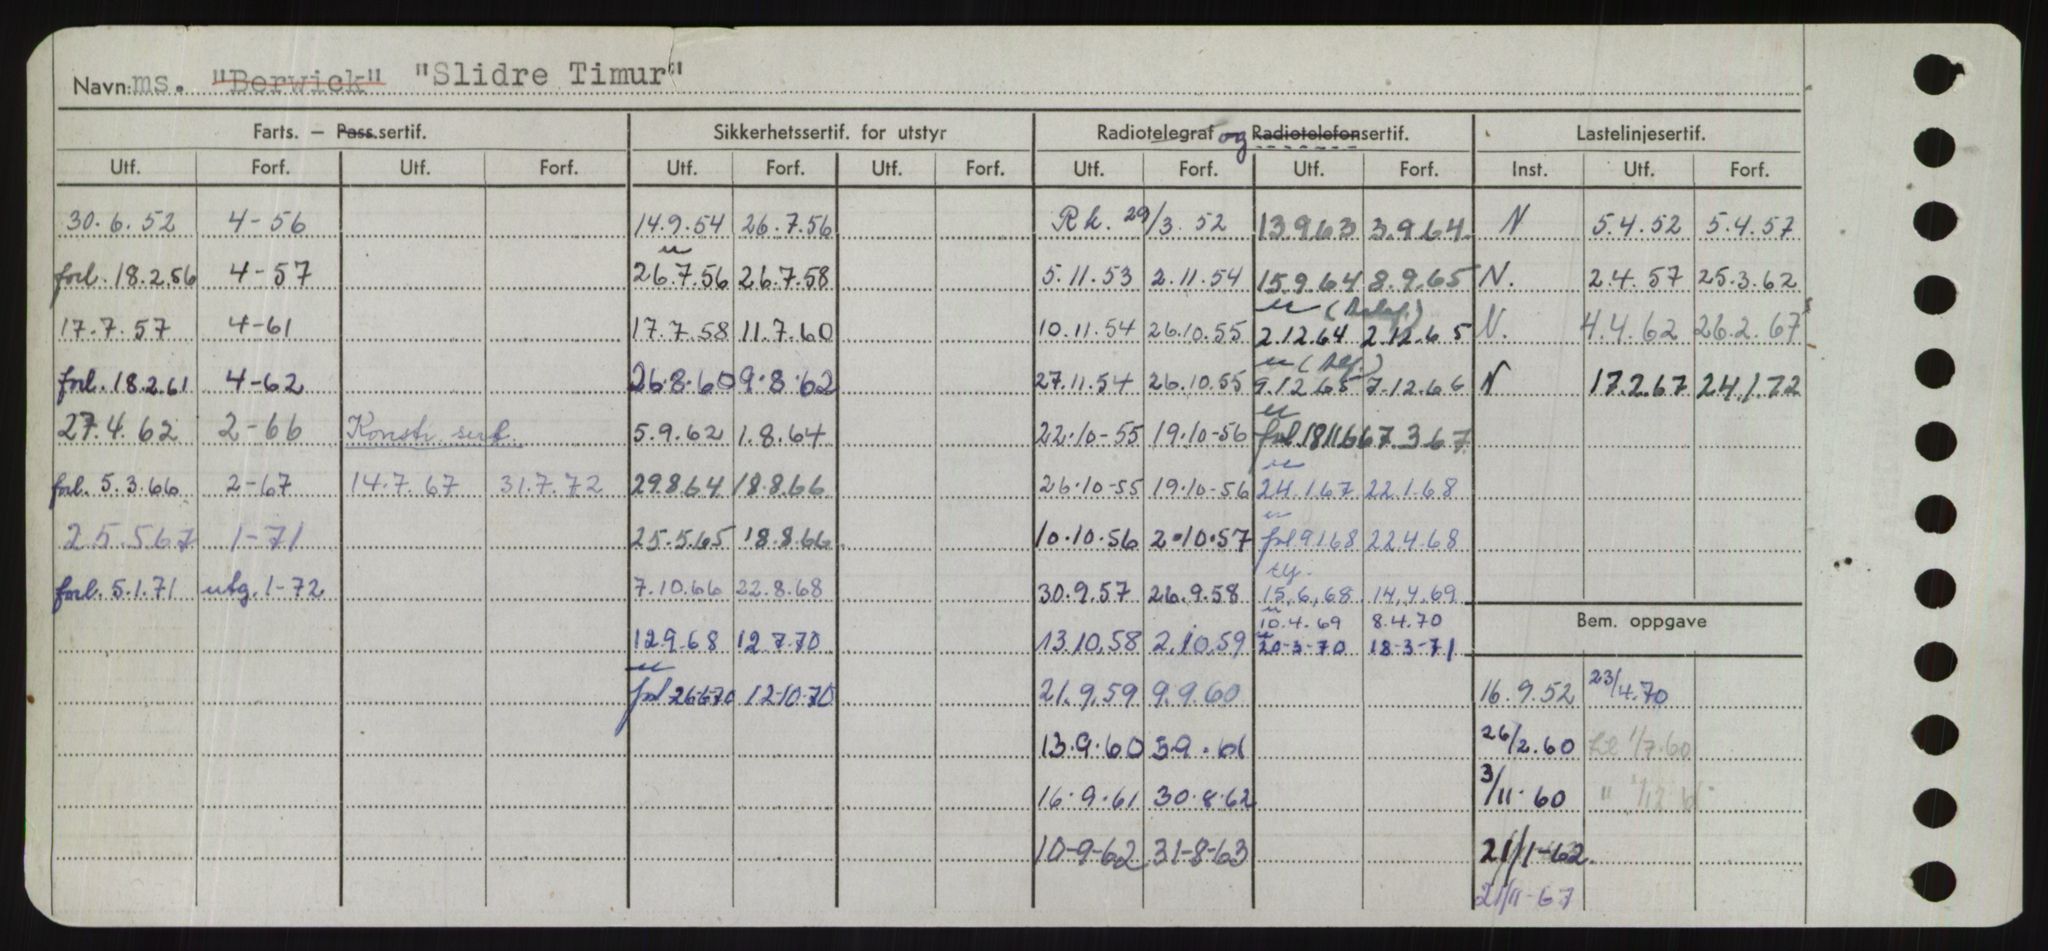 Navn: ms. "Berwick" "Slidre Timur"
Farts. – Pass.sertif. Sikkerhetssertif. for utstyr Radiotelegraf og Radiotelefonsertif. Lastelinjesertif.
Utf. Forf. Utf. Forf. Utf. Forf. Utf. Forf. Utf. Forf. Utf. Forf. Inst. Utf. Forf.
30.6.52 4-56 14.9.54 26.7.56 Rk. 29/3.52 13.9.63 3.9.64. N 5.4.52 5.4.57
forl. 18.2.56 4-57 26.7.56 26.7.58 5.11.53 2.11.54 15.9.64 8.9.65 N. 2.4.57 25.3.62
17.7.57 4-61 17.7.58 11.7.60 10.11.54 26.10.55 2.12.64 2.12.65 N. 4.4.62 26.2.67
forl. 18.2.61 4-62 26.8.60 9.8.62 27.11.54 26.10.55 9.12.65 7.12.66 N 17.2.67 24.1.72
27.4.62 2-66 Konstr. sert. 5.9.62 1.8.64 22.10-55 19.10-56 forl 18.11.66 7.3.67
forl. 5.3.66 2-67 14.7.67 31.7.72 29.8.64 18.8.66 26.10-55 19.10-56 24.1.67 22.1.68
25.5.67 1-71 25.5.65 18.8.66 10.10.56 2.10.57 forl 9.1.68 22.4.68
forl. 5.1.71 utg. 1-72 7.10.66 22.8.68 30.9.57 26.9.58 15.6.68 14.4.69
10.4.69 8.4.70
Bem. oppgave
12.9.68 12.7.70 13.10.58 2.10.59 20-3-70 18-3-71
forl 26.6.70 12.10.70 21.9.59 9.9.60 16.9.52 23/4.70
13.9.60 3.9.61 26/2.60 1/7.60
16.9.61 30.8.62 3/11.60 "
10-9-62 31-8-63 21/1-62
21/11-67